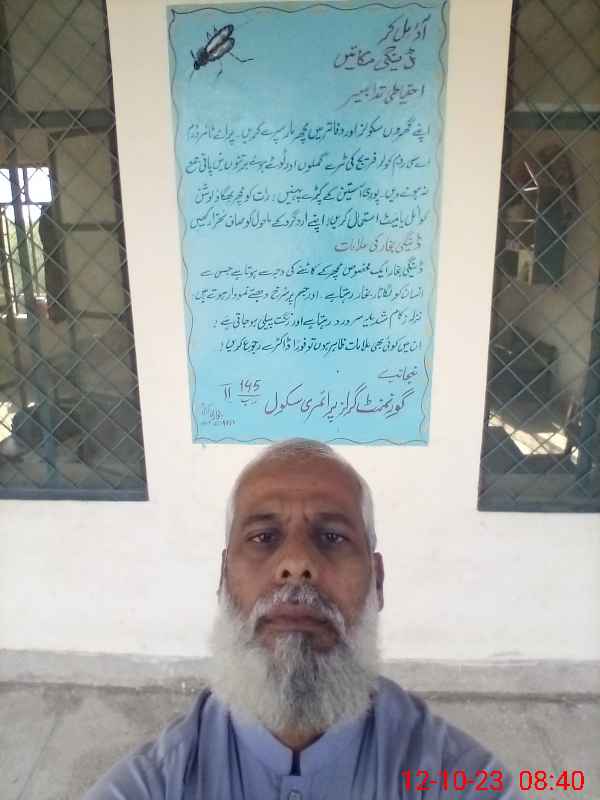 آؤ مل کر
ڈینگی مکائیں
احتیاطی تدابیر
اپنے گھروں سکولز اور دفاتر میں مچھر مار سپرے کریں۔ پرانے ٹائر ورم
اے سی روم کولر فریج کی ٹرے گملوں اور ٹوٹے ہوئے برتنوں میں پانی جمع
نہ ہونے دیں۔ پوری آستین کے کپڑے پہنیں؛ رات کو مچھر بھگاؤ لوشن
کوائل یا میٹ استعمال کریں؛ اپنے اردگرد کے ماحول کو صاف ستھرا رکھیں
ڈینگی بخار کی علامات
ڈینگی بخار ایک مخصوص مچھر کے کاٹنے کی وجہ سے ہوتا ہے جس سے
انسان کو لگاتار بخار رہتا ہے۔ اور جسم پر سرخ دھبے نمودار ہوتے ہیں
نزلہ زکام شدید سر درد رہتا ہے اور رنگت پیلی ہو جاتی ہے؛
ان میں کوئی بھی علامات ظاہر ہوں تو فوراً ڈاکٹر سے رجوع کریں!
منجانب
گورنمنٹ گرلز پرائمری سکول 145 ر ب 11
12-10-23 08:40